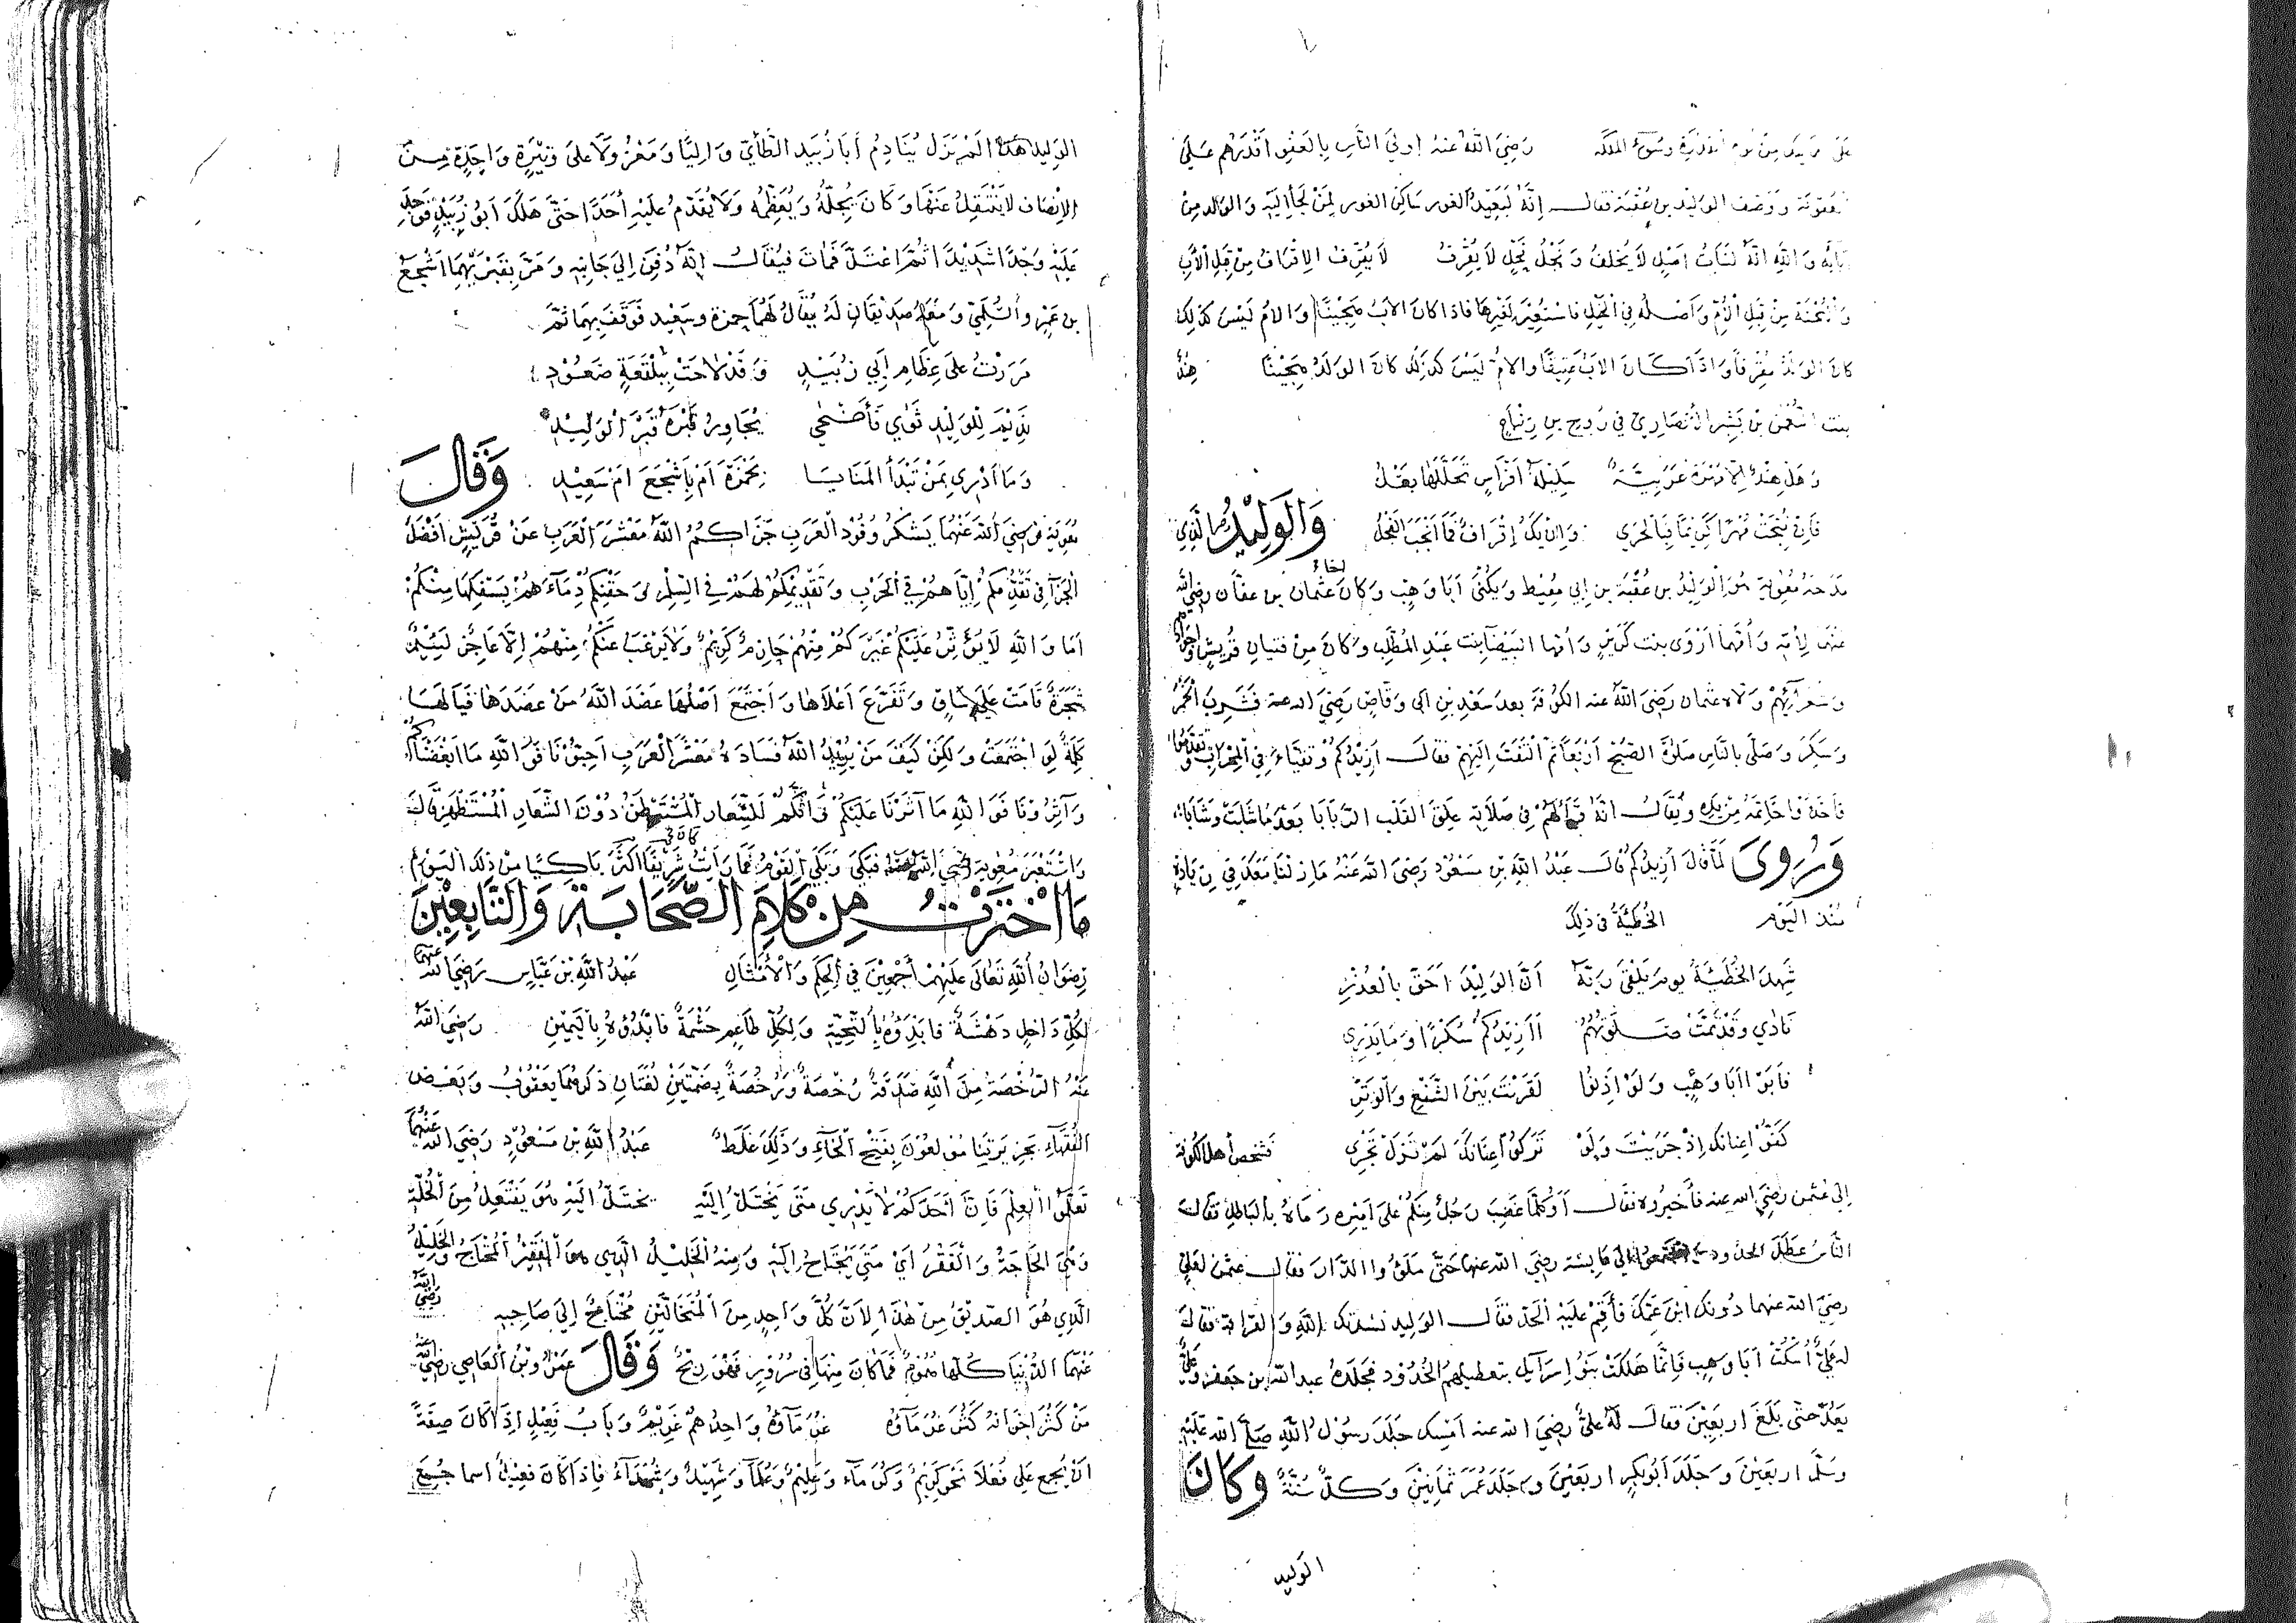 رَضِيَ اللهُ عنهُ اولي النَّاسِ بِالعَفْوِ اَقْدَرُهم عَلَى
وَوَصَف الوَليْد بن عُقبَة فقالــ إنَّهُ لبَعِيْدُ الغَور سَاكِنُ الفَور لِمَنْ لجَأ اليَه وَالوَالد مِنْ
وَاللهِ اِنَّهُ لنَبَاتُ اَصْلٍ لَا يُخْلِفُ وَنَجْلُ فَحْلٍ لَا يُقْرِفُ لَا يُقْرِف الاِقْرَاف مِنْ قِبَلِ الْأَبِ
وَالْهُجْنَة مِنْ قِبَلِ الْأُمّ وَأصْلهُ فِي الْخَيْلِ فَاسْتُعِيْرَ لِغَيْرِهَا فَاذَا كَانَ الْاَبُ هَجِيْنًا وَالامُ لَيْسَ كَذلِكَ
كانَ الوَلَدُ مُقْرِفًا وَاذَا كَـانَ الابُ عَتِيْقًا والامُّ لَيْسَ كذلِكَ كَانَ الوَلَدُ هَجِيْنًا هِنْدُ
بنت النُّعْمٰن بْن بَشِير الأنْصَارِيّ في رَوْحِ بنِ زِنْبَاعٍ
وَهَل هِنْدُ اِلّا مُهْرَة عَرَبِيَّـةٌ سَلِيْلَةُ اَفْرَاسٍ تَحَلَّلَهَا بَغْلُ
فَاِنْ نُتِجَتْ مُهْرًا كَرِيمًا فَبِالْحَرَى وَاِنْ يَكُ اِقْرَافٌ فَمَا اَنْجَبَ الفَحْلُ وَالوَلِيْدُ الَّذِي
مَدَحَهُ مُعٰوِية هُوَ الْوَلِيْدُ بن عُقْبَة بن ابي مُعَيْط وَيُكْنَى اَبَا وَهْبٍ وَكَانَ اخَا عثْمان بن عفَّان رضي الله
عنهُمَا لِأُمّه وَاُمُّهما اَرْوَى بنت كُرَيْزٍ وَأمّها البَيْضَآ بنت عَبْدِ المُطَّلِب وَكانَ مِنْ فِتيان قُرَيشٍ وَاَجْوَادهم
وَشُعَرَآئِهِمْ وَوَلّاه عثمان رَضيَ اللهُ عنه الكوفَة بعدَ سَعْدِ بْنِ ابي وَقّاصٍ رَضِيَ الله عنه فَشَرِبَ الْخَمْرَ
وَسَكِرَ وَصَلّى بالنَّاسِ صَلٰوةَ الصّبْحِ اَرْبَعًا ثُمَّ الْتَفَتَ اِلَيْهِمْ فقَالَــ اَزِيْدُكُمْ وَتَقَيَّاءَ فِي الْمِحْرَابِ وَتَقَدَّمُوا
فَأَخَذُوا خَاتِمَهُ مِنْ يَدِهِ وَيُقَالُــ انّه قَرَأ لَهُمْ فِي صَلَاتِه عَلِقَ القَلْب الرَّبَابَا بَعْدَ مَا شَابَتْ وَشَابَا
وَرُوِىَ لَمّا قَالَ اَزِيْدُكُمْ قَالَــ عَبْدُ اللهِ بن مَسْعُوْدٍ رَضيَ اللهُ عَنْهُ مَا زِلْنَا مَعَكَ فِي زِيَادَةٍ
مُنذ اليَوْم الحُطَيْئَةُ فى ذلِكَ
شَهِدَ الحُطَيْئَةُ يومَ يَلْقَى رَبَّهُ اَنَّ الوَلِيْدَ اَحَقُّ بالْعُذْرِ
نَادَى وَقَدْ تَمَّتْ صَـلٰوتُهُمُ اَ اَزِيْدُكُمْ سُكْرًا وَمَا يَدْرِي
فَأَبَوْا اَبَا وَهْبٍ وَلَوْ اَذِنُوْا لَقَرَنْتَ بَيْنَ الشَّفْعِ وَالوَتْرِ
كَفُّوْا عِنَانَك اِذْ جَرَيْتَ وَلَوْ تَرَكُوا عِنَانَكَ لَمْ تَزَلْ تَجْرِي فَشَخصَ أَهلُ الكُوفَة
اِلى عُثمن رضيَ الله عنه فأَخْبرُوه فقَالَــ اَوَكُلَّمَا غَضِبَ رَجُلٌ مِنكُمْ عَلَى اَمِيْرِه رَمَاهُ بالبَاطِلِ فقَالَ
النَّاسُ عَطّلَ الحدُود الى عَايشة رضِيَ الله عنها حَتّى مَلَؤُوا الدّارَ فقَالــ عثمٰن لعَليّ
رضيَ الله عنهما دُونك ابْنَ عَمِّكَ فأَقِمْ عَلَيْهِ الْحَدّ فقَالــ الوَليد نشدتك باللهِ وَالقرَابَة فقَالَ
له عَليٌّ اُسْكُتْ اَبَا وَهبٍ فَانّمَا هَلَكَتْ بَنُو اِسرَآئيل بتَعطيلِهمُ الحُدُود فجَلَدَهُ عبدالله بن جعفر وَعَليٌّ
يَعُدُّ حَتّى بَلَغَ اربَعِيْنَ فقَالَ لَهُ عَلِيٌّ رَضِيَ الله عنه اَمْسِك جَلَدَ رَسُوْلُ اللهِ صَلّى الله عَلَيْه
وَسَلّم اربَعِيْنَ وَجَلَدَ اَبُوبَكرٍ اربَعِيْنَ وَجَلَدَ عُمَرُ ثَمانِيْنَ وَكــلٌّ سُنَّةٌ وَكَانَ
الوليد
الوَليد هَذَا لَمْ يَزَل يُنَادِمُ اَبَا زُبَيْد الطَّائيّ وَالِيًا وَمَعْزُولًا عَلى وَتِيْرَةٍ وَاحِدَةٍ مِـنَ
الاِنْصَاف لَا يَنْتَقِلُ عَنْهَا وَكانَ يُجِلُّهُ وَيُعَظِّمُه وَلَا يُقَدِّمُ عَلَيْهِ أَحَدًا حَتَّى هَلَكَ ابُو زُبَيْدٍ فوَجَدَ
عَلَيْهِ وَجْدًا شدِيْدًا ثُمَّ اعْتَلَّ فَمَاتَ فَيُقَالُــ اِنَّهُ دُفِنَ اِلَى جَانِبِه وَمَرَّ بِقَبْرَيْهِمَا اَشْجَعُ
بن عَمْرٍو السُّلَمِيّ وَمعَهُ صَدِيْقَانِ لَهُ يُقَالُ لَهُمَا حمزة وسَعِيْد فَوَقَفَ بِهِمَا ثُمّ
مَرَرْتُ عَلى عِظَامِ اَبِي زُبَيْدٍ وَقَدْ لَاحَتْ بِبَلْقَعَةٍ صَعُوْدِ
نَدِيْمٌ لِلْوَلِيْدِ ثَوَى فَأَضْحَى يُجَاوِرُ قَبْرُهُ قَبْرَ الْوَلِيْدِ
وَمَا اَدْرِي بِمَنْ تَبْدَأُ المَنَايَا بِحَمْزَةَ اَمْ بِاَشْجَعَ امْ سَعِيْدِ وَقَالَ
مُعٰوِيَة رَضيَ الله عَنْهُمَا يَشكُرُ وُفُوْدَ العَرَبِ جَزَاكُمُ اللهُ مَعْشَرَ العَرَبِ عَنْ قُرَيْشٍ اَفْضَلَ
الجَزَآ فِي تَقَدُّمِكُمْ اِيّاهُمْ فِي الحَرْبِ وَتَقْدِيْمِكُمْ لَهُمْ فِي السِّلْمِ وَحَقْنِكُمْ دِمَآءَهُمْ بِسَفْكِهَا مِنْكُمْ
اَمَا وَاللهِ لَا يُؤْثِرُ عَلَيْكُمْ غَيْرَكُمْ مِنْهُمْ حَازِمٌ كَرِيْمٌ وَلَا يَرْغَبُ عَنْكُمْ مِنْهُمْ اِلّا عَاجِزٌ لَئِيْمٌ
شَجَرَةٌ قَامَتْ عَلى سَاقٍ وَتَفَرَّعَ اَعْلَاهَا وَاجْتَمَعَ اَصْلُهَا عَضَدَ اللهُ مَنْ عَضَدَهَا فَيَا لَهَا
كَلِمَةً لَوِ اجْتَمَعَتْ وَلكِنْ كَيْفَ مَنْ يُرِيْدُ اللهُ فَسَادَهُ مَعْشَرَ الْعَرَبِ اَحِبُّوْنَا فَوَاللهِ مَا اَبْغَضْنَاكُمْ
وَآثِرُوْنَا فَوَاللهِ مَا آثَرْنَا عَلَيْكُمْ وَاِنَّكُمْ لَلشِّعَار الْمُسْتَبْطَنُ دُوْنَ الشِّعَارِ الْمُسْتَظْهَر قَالَ
وَاسْتَعْبَرَ مُعٰوية رَضيَ الله عنه فبَكى وَبَكَى القَوْمُ فَمَا رَأيْتُ شَرِيْفًا كَانَ اكْثَرَ بَاكِيًا مِنْ ذلِكَ اليَوْمِ
مَا اخْتَرْتُ مِنْ كَلَامِ الصَّحَابَةِ وَالتَّابِعِيْنَ
رِضْوَانُ اللهِ تَعَالَى عَلَيْهِمْ أَجْمَعِيْنَ فِي الحِكَمِ وَالْأَمْثَالِ عَبْدُ اللهِ بْن عَبَّاسٍ رَضيَ الله عَنهما
لِكُلِّ دَاخِلٍ دَهْشَةٌ فابْدَؤُهُ بِالتَّحِيَّةِ وَلِكُلِّ طَاعِمٍ حِشْمَةٌ فَابْدَؤُهُ بِاليَمِيْنِ رَضيَ اللهُ
عَنْهُ الرُّخْصَةُ مِنَ اللهِ صَدَقَةٌ رُخْصَةٌ وَرُخُصَةٌ بِضَمَّتَيْنِ لُغَتَانِ ذَكَرَهُمَا يَعْقُوْبُ وَبَعْـضُ
الفُقَهَآءِ مُوْلعُوْنَ بِفَتْحِ الْخَآءِ وَذَلِكَ غَلَطٌ عَبْدُ اللهِ بْن مَسْعُوْدٍ رَضِيَ الله عَنْهُمَا
تَعَلَّمُوا العِلْمَ فَاِنَّ اَحَدَكُمْ لَا يَدْرِي مَتَى يُخْتَلُّ اِلَيْهِ يختَـلُّ اليَهِ هُوَ يَفْتَعِلُ مِنَ الْخَلَّةِ
وَهِيَ الحَاجَةُ وَالْفَقْرُ اَيْ مَتَى يُحْتَاجُ اِلَيْهِ وَمِنْهُ الْخَلِيْلُ الَّذِي هُوَ الْفَقِيْرُ الْمُحْتَاجُ وَالخَلِيْلُ
الَّذِي هُوَ الصَّدِيْقُ مِنْ هٰذَا لِاَنَّ كُلَّ وَاحِدٍ مِنَ الْمُتَخَالَّيْنِ مُحْتَاجٌ اِلَى صَاحِبِهِ رَضِيَ اللهُ
عَنْهُمَا الدُّنْيَا كُلُّهَا هُمُوْمٌ فَمَا كَانَ مِنْهَا فِي سُرُوْرٍ فَهُوَ رِبْحٌ وَقَالَ عَمْرُوْ بْنُ الْعَاصِي رَضِيَ الله عنه
مَنْ كَثُرَ اِخْوَانُهُ كَثُرَ غُرَمَآؤُهُ غُرَمَآؤُهُ وَاحِدُهُمْ غَرِيْمٌ وَبَابُ فَعِيْلٍ اِذَا كَانَ صِفَةً
اَنْ يُجْمَعَ عَلى فُعَلَا نَحْوُ كَرِيْمٌ وَكُرَمَآء وَعَلِيْمٌ وَعُلَمَآ وَشَهِيْدٌ وَشُهَدَآءُ فَاِذَا كَانَ فَعِيْلٌ اسما جُمِعَ